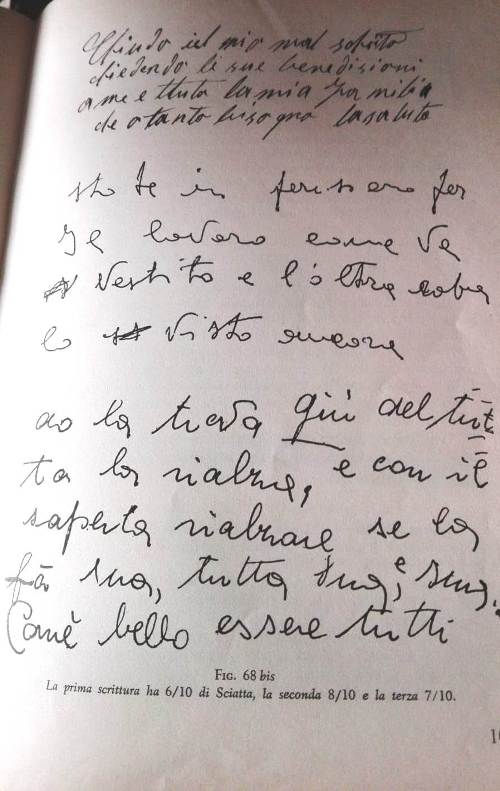 Chiudo il mio mal scritto
chiedendo le sue benedisioni
a me e ttuta la mia familia
che o tanto bisogno la saluto
sto te in pensiero per
il lavoro come va
vestito e l'oltra roba
lo visto ancora
do la trova giù del tut
ta la rialza, e con il
saperla rialzare se la
fà sua, tutta sua, e sua.
Com'è bello essere tutti
FIG. 68 bis
La prima scrittura ha 6/10 di Sciatta, la seconda 8/10 e la terza 7/10.